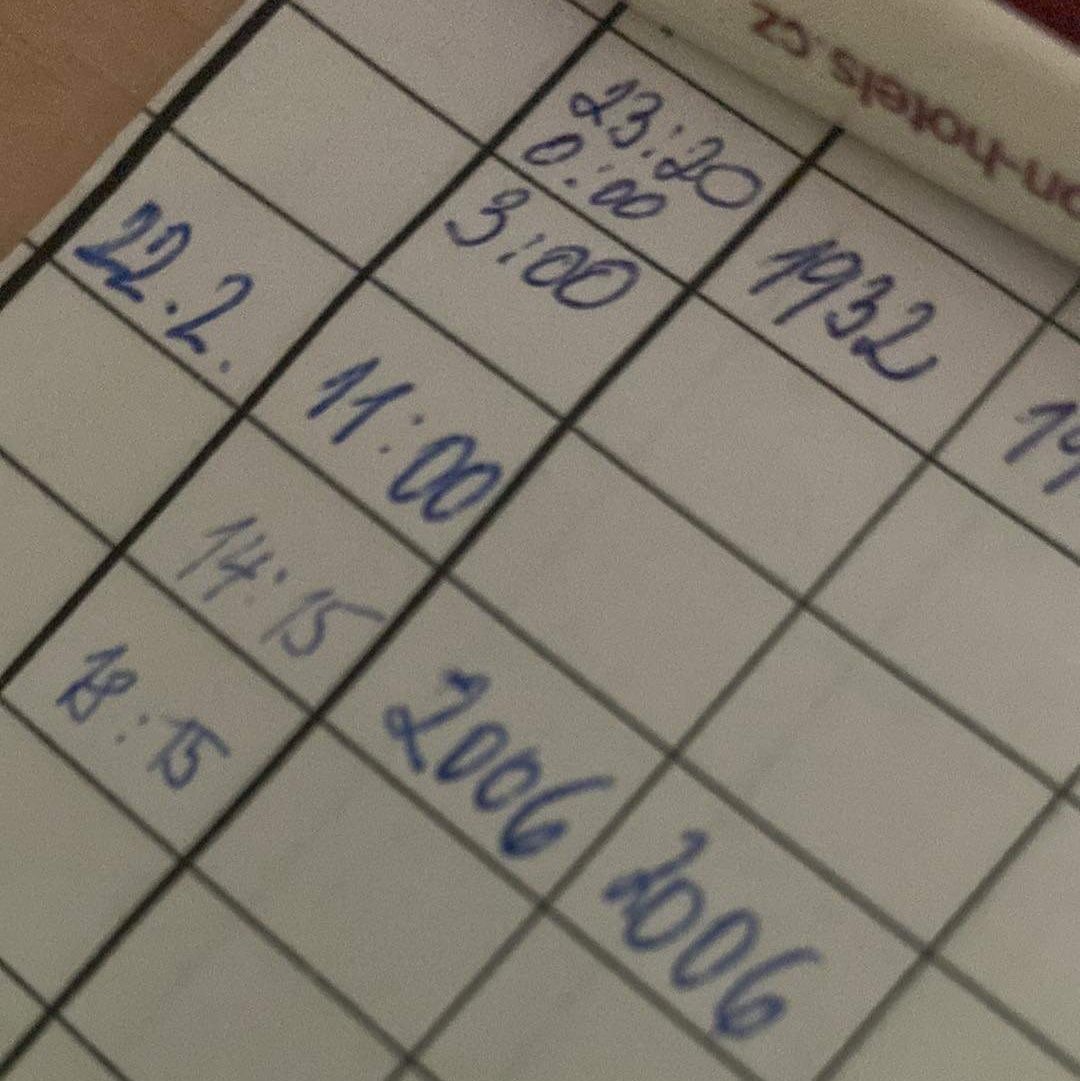 n-hotels.cz
23:20
0:00
1932
19
3:00
22.2.
11:00
14:15
2006
2006
18:15